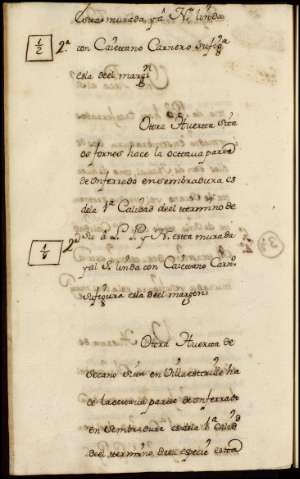 esta murada, y al N. linda
1/2 2ª con Caietano Carnero su figª
es la del margⁿ
Otra Huerta Sita
de fornos hace la octava parte
de ferrado en sembradura es
de la 1ª Calidad del termino de
1/8 2ª a L. P. y N. esta murada
y al S. linda con Caietano Carnº
su figura es la del margen
Otra Huerta de
Secano Sita en Villaestruille ha
de la octava parte de ferrado
en Sembradura es de la 1ª calidᵈ
del termino, de su especie, esta